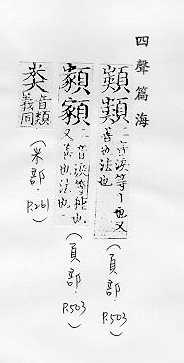 四聲篇海
二音淚等丨也又
善也法也
(頁部.
P.503)
音淚等比也
又善也法也
(頁部.
P.503)
音類
義同
(米部.
P.261)